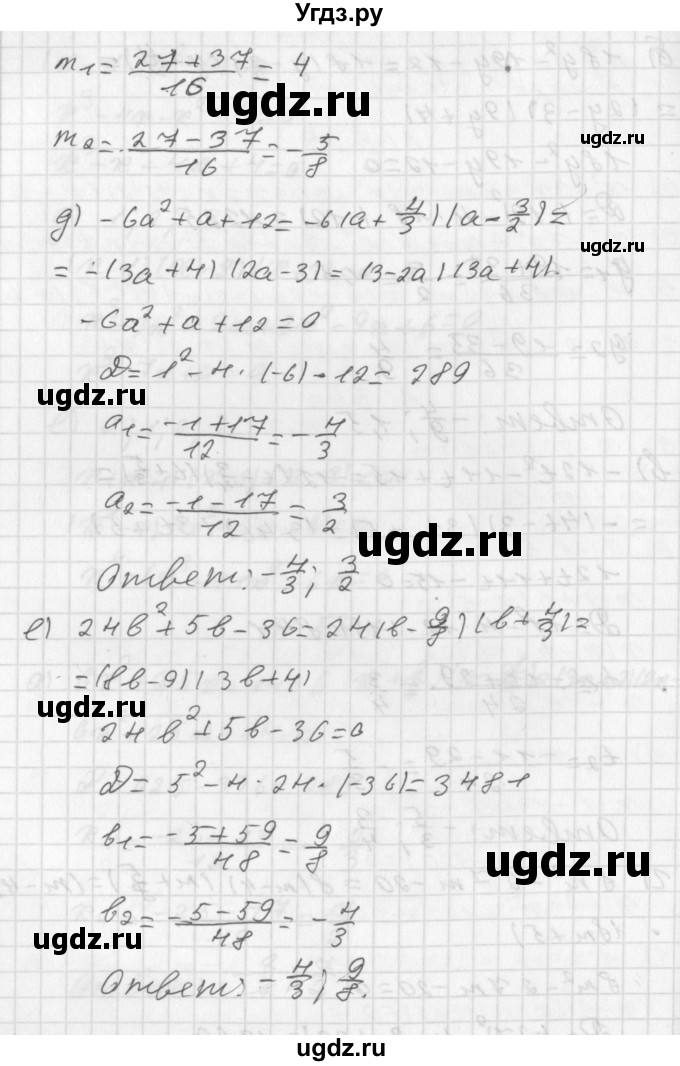 Угдз.ру
m₁ = (27+37)/16 = 4
ugdz.ru
ugdz.ru
m₂ = (27-37)/16 = -5/8
д) -6a² + a + 12 = -6(a + 4/3)(a - 3/2) =
ugdz.ru
= -(3a+4)(2a-3) = (3-2a)(3a+4).
-6a² + a + 12 = 0
D = 1² - 4 · (-6) · 12 = 289
ugdz.ru
a₁ = (-1+17)/12 = -4/3
a₂ = (-1-17)/12 = 3/2
ugdz.ru
Ответ: -4/3; 3/2
е) 24b² + 5b - 36 = 24(b - 9/8)(b + 4/3) =
= (8b-9)(3b+4)
ugdz.ru
24b² + 5b - 36 = 0
D = 5² - 4 · 24 · (-36) = 3481
b₁ = (-5+59)/48 = 9/8
ugdz.ru
b₂ = (-5-59)/48 = -4/3
ugdz.ru
Ответ: -4/3; 9/8.
ugdz.ru